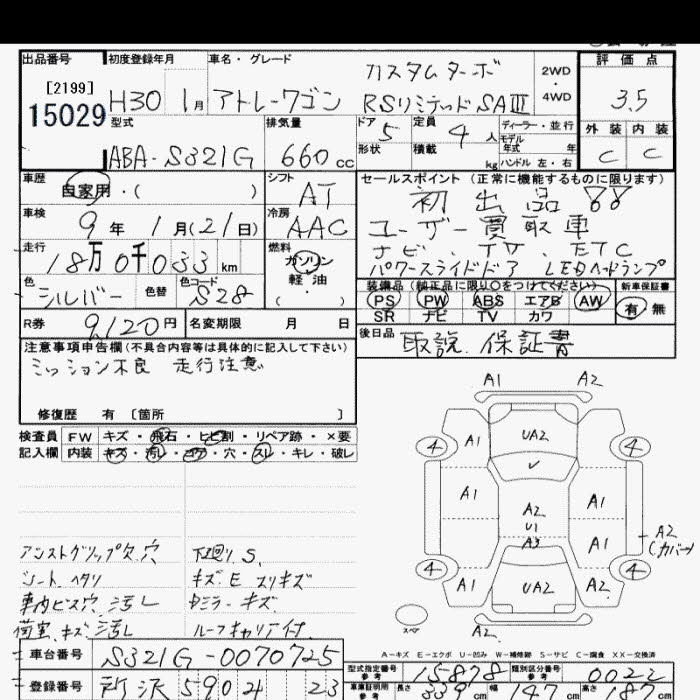 出品番号 初度登録年月 車名・グレード 評価点
[2199]
15029
H30 1月 アトレーワゴン
カスタムターボ
RSリミテッドSAⅢ
2WD
4WD
3.5
型式 排気量
ABA-S321G 660cc
ドア 5 定員 4人 ディーラー・並行
モデル年式 年
形状 積載 kg ハンドル 左・右
外装 内装
C C
車歴 自家用・( ) シフト AT
車検 9年 1月(21日) 冷房 AAC
走行 18万0千033km 燃料 ガソリン
軽油
( )
色 シルバー 色替 色コード S28
R券 9,120円 名変期限 月 日
セールスポイント (正常に機能するものに限ります)
初出品
ユーザー買取車
ナビ、TV、ETC
パワースライドドア LEDヘッドランプ
装備品(純正品に限り○をつけてください) 新車保証書
PS PW ABS エアB AW
SR ナビ TV カワ
有 無
後日品 取説、保証書
注意事項申告欄(不具合内容等は具体的に記入して下さい)
ミッション不良 走行注意
修復歴 有 〔箇所 〕
検査員 FW キズ・飛石・ヒビ割・リペア跡・×要
記入欄 内装 キズ・汚レ・コゲ・穴・スレ・キレ・破レ
アシストグリップ欠、穴
シート、ヘタリ
車内ビス穴、汚レ
荷室、キズ、汚レ
下廻りS、
キズ、E、スリキズ
ルーフキャリア付、
A1 A2
4 A1 UA2 4
A1 A2 A1
U1
A3 A1 A2
(カバー)
4 A1 UA2 A2 4
スペア A2
A−キズ E−エクボ U−凹み W−補修跡 S−サビ C−腐食 XX−交換済
車台番号 S321G-0070725
型式指定番号 参考 15878 類別区分番号 参考 0022
登録番号
車庫証明用 参考 長さ 339cm 幅 147cm 高さ 187cm